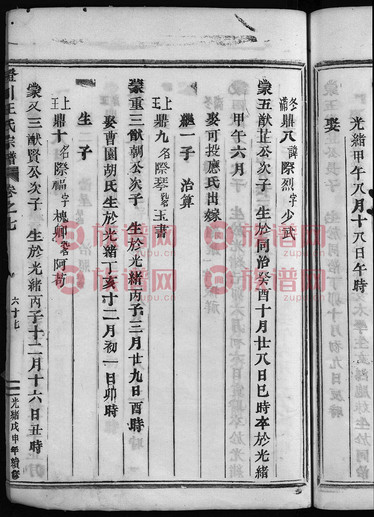 光緒甲午八月十八日午時
娶
冬蒲鼎八諱際烈字少武
蒙五猷芷公次子 生於同治癸酉十月廿八日巳時卒於光緒
甲午六月
娶可投應氏出嫁
繼一子 治算
上王鼎九名際琴號玉書
蒙重三猷朝公次子 生於光緒丙子三月廿九日酉時
娶曹園胡氏生於光緒丁亥十二月初一日卯時
生子
上王鼎十名際福字槐卿號阿苟
蒙又三猷賢公次子 生於光緒丙子十二月十六日丑時
王氏宗譜
卷之七
六十七
光緒戊申年續修
族譜网